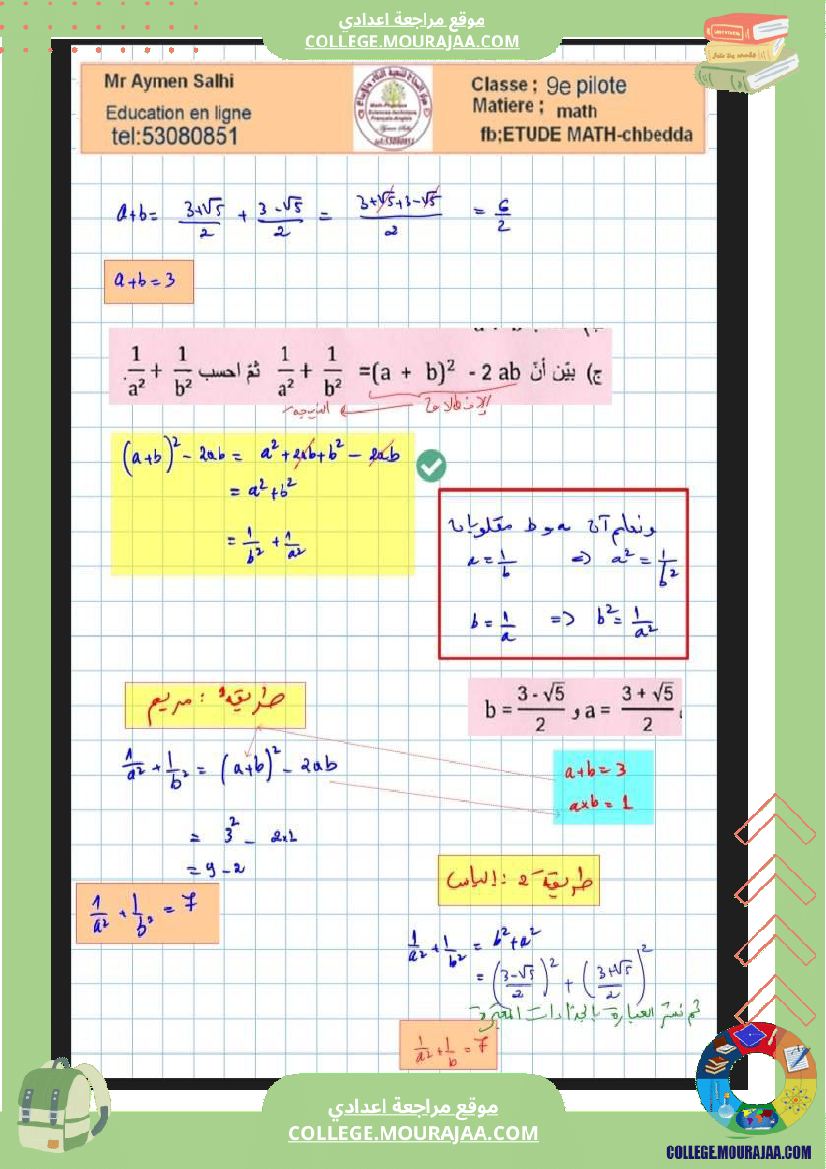 موقع مراجعة اعدادي
COLLEGE.MOURAJAA.COM
Mr Aymen Salhi
Education en ligne
tel:53080851
Classe ; 9e pilote
Matiere ; math
fb;ETUDE MATH-chbedda
a+b= (3+√5)/2 + (3-√5)/2 = (3+√5+3-√5)/2 = 6/2
a+b=3
ج) بيّن أنّ 1/a² + 1/b² =(a + b)² - 2 ab ثمّ احسب 1/a² + 1/b².
(a+b)² - 2ab = a² + 2ab + b² - 2ab
= a² + b²
= 1/b² + 1/a²
ونعلم أن a و b مقلوبان
a = 1/b => a² = 1/b²
b = 1/a => b² = 1/a²
b = (3 - √5)/2 و a = (3 + √5)/2
طريقة 1 : مريم
1/a² + 1/b² = (a+b)² - 2ab
a+b = 3
a×b = 1
= 3² - 2×1
= 9 - 2
1/a² + 1/b² = 7
طريقة 2 : إلياس
1/a² + 1/b² = b² + a²
= ((3-√5)/2)² + ((3+√5)/2)²
ثم ننشر العبارة بالجذاءات المعتبرة
1/a² + 1/b = 7
موقع مراجعة اعدادي
COLLEGE.MOURAJAA.COM
COLLEGE.MOURAJAA.COM